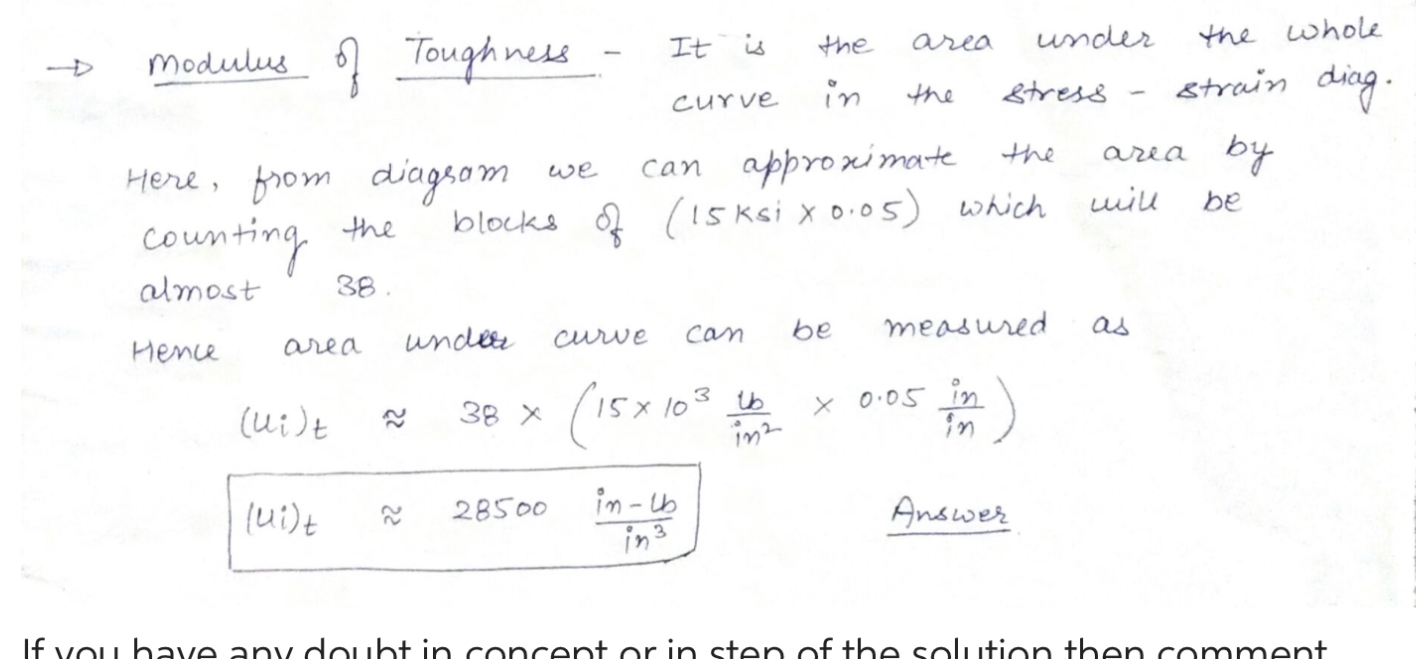 → Modulus of Toughness - It is the area under the whole
curve in the stress - strain diag.
Here, from diagram we can approximate the area by
counting the blocks of (15 Ksi x 0.05) which will be
almost 38.
Hence area under curve can be measured as
(Ui)t ≈ 38 × (15 × 10³ lb/in² × 0.05 in/in)
(Ui)t ≈ 28500 in-lb/in³ Answer
If you have any doubt in concept or in step of the solution then comment